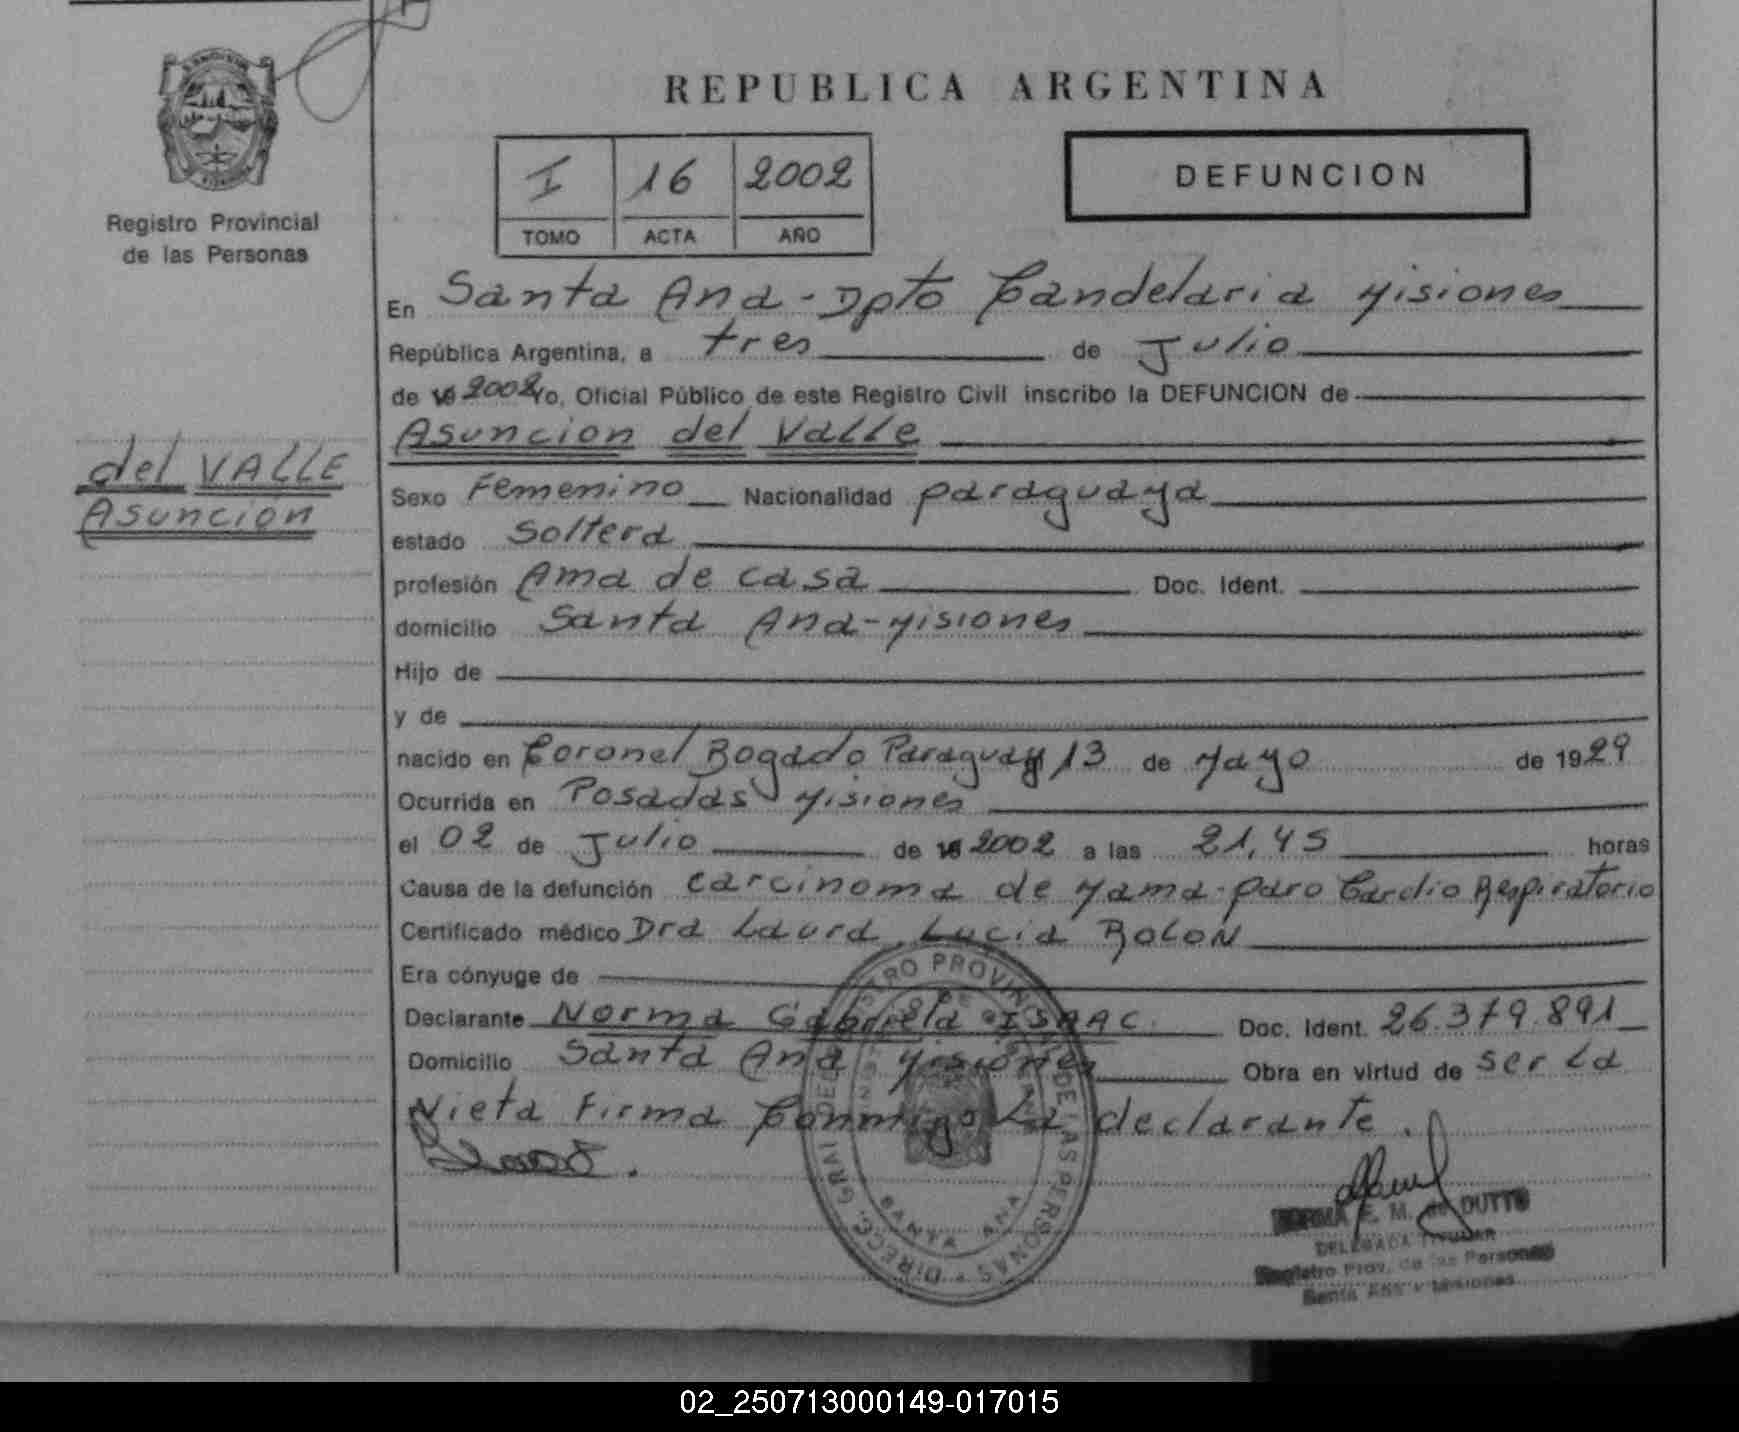 REPUBLICA ARGENTINA
Registro Provincial
de las Personas
I 16 2002
TOMO ACTA AÑO
DEFUNCION
En Santa Ana - Dpto Candelaria Misiones
República Argentina, a tres de Julio
de 19 2002 Yo, Oficial Público de este Registro Civil inscribo la DEFUNCION de
Asuncion del Valle
del VALLE
Asunción
Sexo Femenino Nacionalidad paraguaya
estado Soltera
profesión Ama de casa Doc. Ident.
domicilio Santa Ana - Misiones
Hijo de
y de
nacido en Coronel Bogado Paraguay 13 de Mayo de 1929
Ocurrida en Posadas Misiones
el 02 de Julio de 19 2002 a las 21,45 horas
Causa de la defunción carcinoma de Mama - paro Cardio Respiratorio
Certificado médico Dra Laura Lucia BOLON
Era cónyuge de
Declarante Norma Gabriela ISAAC. Doc. Ident. 26.379.891
Domicilio Santa Ana Misiones Obra en virtud de ser La
Nieta Firma Conmigo La declarante.
DIRECC. GRAL. DEL REGISTRO PROVINCIAL DE LAS PERSONAS
SANTA ANA
NORMA E. M. de DUTTO
DELEGADA TITULAR
Registro Prov. de las Personas
Santa Ana - Misiones
02_250713000149-017015